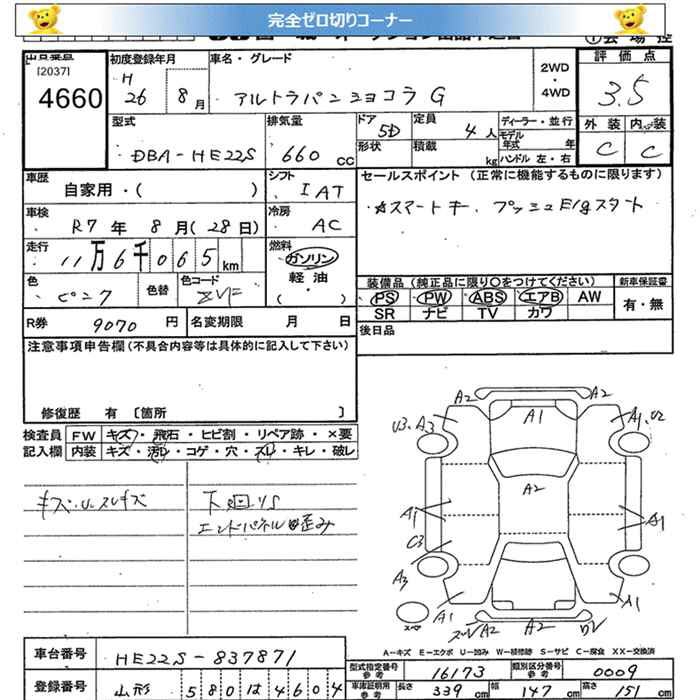 完全ゼロ切りコーナー
[2037]
4660
初度登録年月
H
26 8月
車名・グレード
アルトラパンショコラG
2WD
・
4WD
評価点
3.5
外装 内装
C C
型式
DBA-HE22S
排気量
660 cc
ドア
5D
形状
定員
4人
積載
kg
ディーラー・並行
モデル
年式 年
ハンドル 左・右
車歴
自家用・( )
シフト
IAT
車検
R7年 8月(28日)
冷房
AC
走行
11万6千065km
燃料
ガソリン
軽油
( )
色
ピンク
色替
色コード
ZVF
R券 9070 円
名変期限 月 日
セールスポイント(正常に機能するものに限ります)
☆スマートキー、プッシュE/gスタート
装備品(純正品に限り○をつけてください)
PS PW ABS エアB AW
SR ナビ TV カワ
新車保証書
有・無
後日品
注意事項申告欄(不具合内容等は具体的に記入して下さい)
修復歴 有 [箇所 ]
検査員
記入欄
FW キズ・飛石・ヒビ割・リペア跡・×要
内装 キズ・汚レ・コゲ・穴・スレ・キレ・破レ
キズ・U・スレキズ
下回りS
エンドパネル歪み
A2 A2
U3・A3 A1 A1・U2
A2
A1 A1
C3
A3
A1 A1
A2 A2
スペア
A-キズ E-エクボ U-凹み W-補修跡 S-サビ C-腐食 XX-交換済
車台番号 HE22S-837871
登録番号 山形 580 は 4604
型式指定番号
参考
16173
類別区分番号
参考
0009
車庫証明用
参考
長さ 339 cm
幅 147 cm
高さ 151 cm